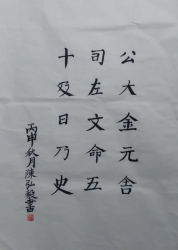 公大金元舍
司左文命五
十日乃史
丙申秋月陳弘書